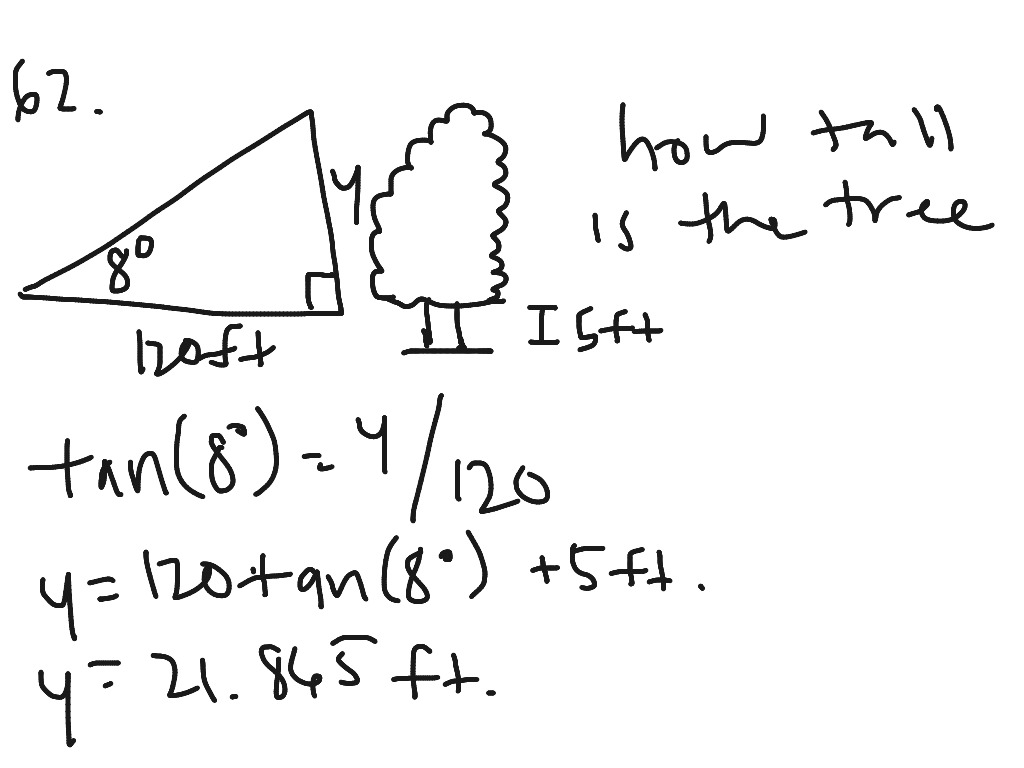 62.
how tall
is the tree
y
8°
120ft
5ft
tan(8°) = y/120
y = 120tan(8°) + 5ft.
y = 21.865 ft.